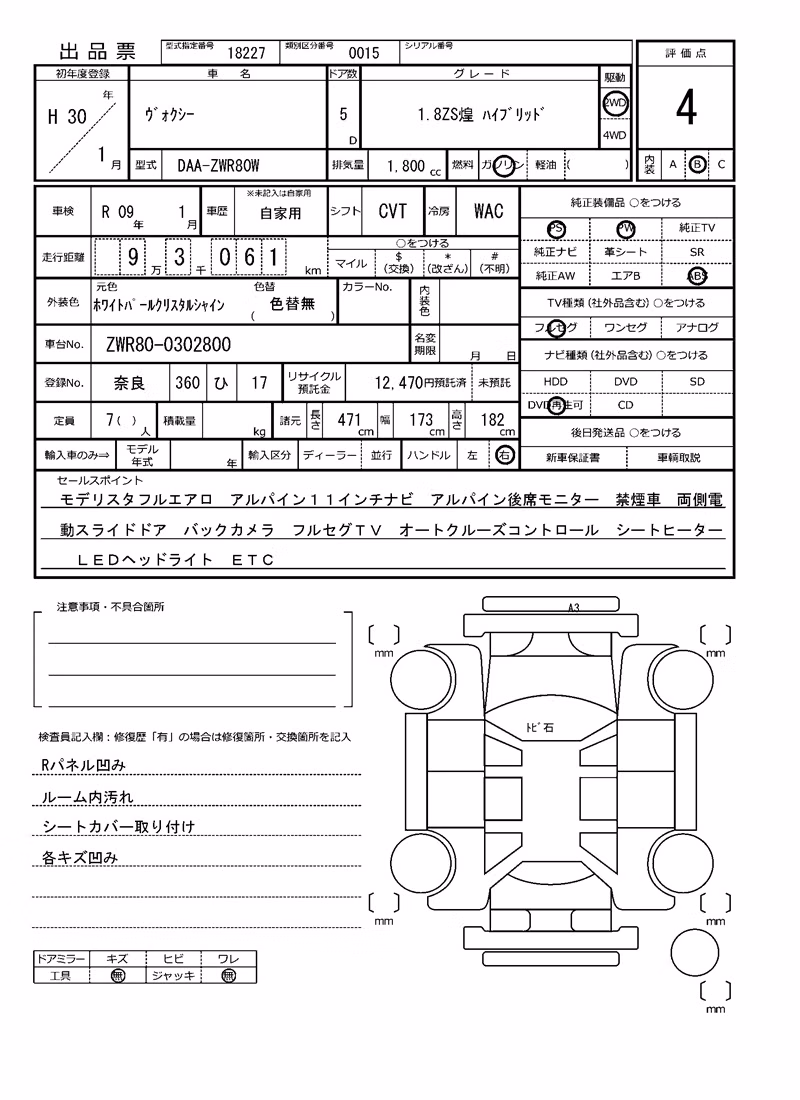 出品票 型式指定番号 18227 類別区分番号 0015 シリアル番号
評価点
4
内装 A B C
初年度登録 車名 ドア数 グレード 駆動
H 30 年 1 月 ヴォクシー 5 D 1.8ZS煌 ハイブリッド 2WD
4WD
型式 DAA-ZWR80W 排気量 1,800 cc 燃料 ガソリン 軽油 ( )
車検 R 09 年 1 月 車歴 ※未記入は自家用 自家用 シフト CVT 冷房 WAC
走行距離 9 万 3 千 0 6 1 km ○をつける
マイル $ (交換) * (改ざん) # (不明)
外装色 元色 ホワイトパールクリスタルシャイン 色替 ( 色替無 ) カラーNo. 内装色
車台No. ZWR80-0302800 名変期限 月 日
登録No. 奈良 360 ひ 17 リサイクル預託金 12,470円預託済 未預託
定員 7( ) 人 積載量 kg 諸元 長さ 471 cm 幅 173 cm 高さ 182 cm
輸入車のみ⇒ モデル年式 年 輸入区分 ディーラー 並行 ハンドル 左 右
純正装備品 ○をつける
PS PW 純正TV
純正ナビ 革シート SR
純正AW エアB ABS
TV種類(社外品含む)○をつける
フルセグ ワンセグ アナログ
ナビ種類(社外品含む)○をつける
HDD DVD SD
DVD再生可 CD
後日発送品 ○をつける
新車保証書 車輌取説
セールスポイント
モデリスタフルエアロ アルパイン11インチナビ アルパイン後席モニター 禁煙車 両側電
動スライドドア バックカメラ フルセグTV オートクルーズコントロール シートヒーター
LEDヘッドライト ETC
注意事項・不具合箇所
検査員記入欄：修復歴「有」の場合は修復箇所・交換箇所を記入
Rパネル凹み
ルーム内汚れ
シートカバー取り付け
各キズ凹み
ドアミラー キズ ヒビ ワレ
工具 無 ジャッキ 無
A3
〔 〕 mm
〔 〕 mm
トビ石
〔 〕 mm
〔 〕 mm
〔 〕 mm